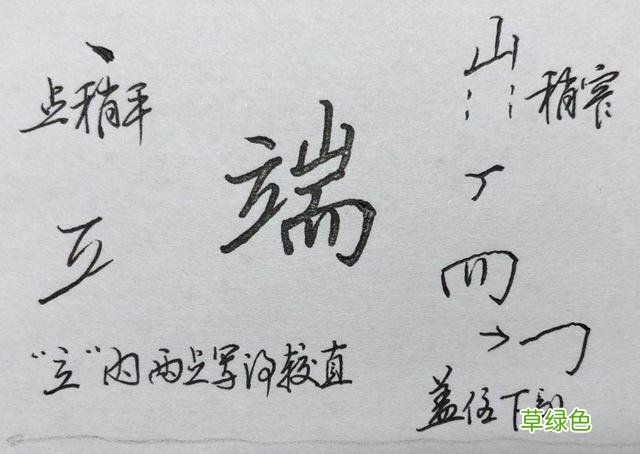 点稍平
端
山
稍窄
"立"内两点写得较直
盖住下部
草绿色